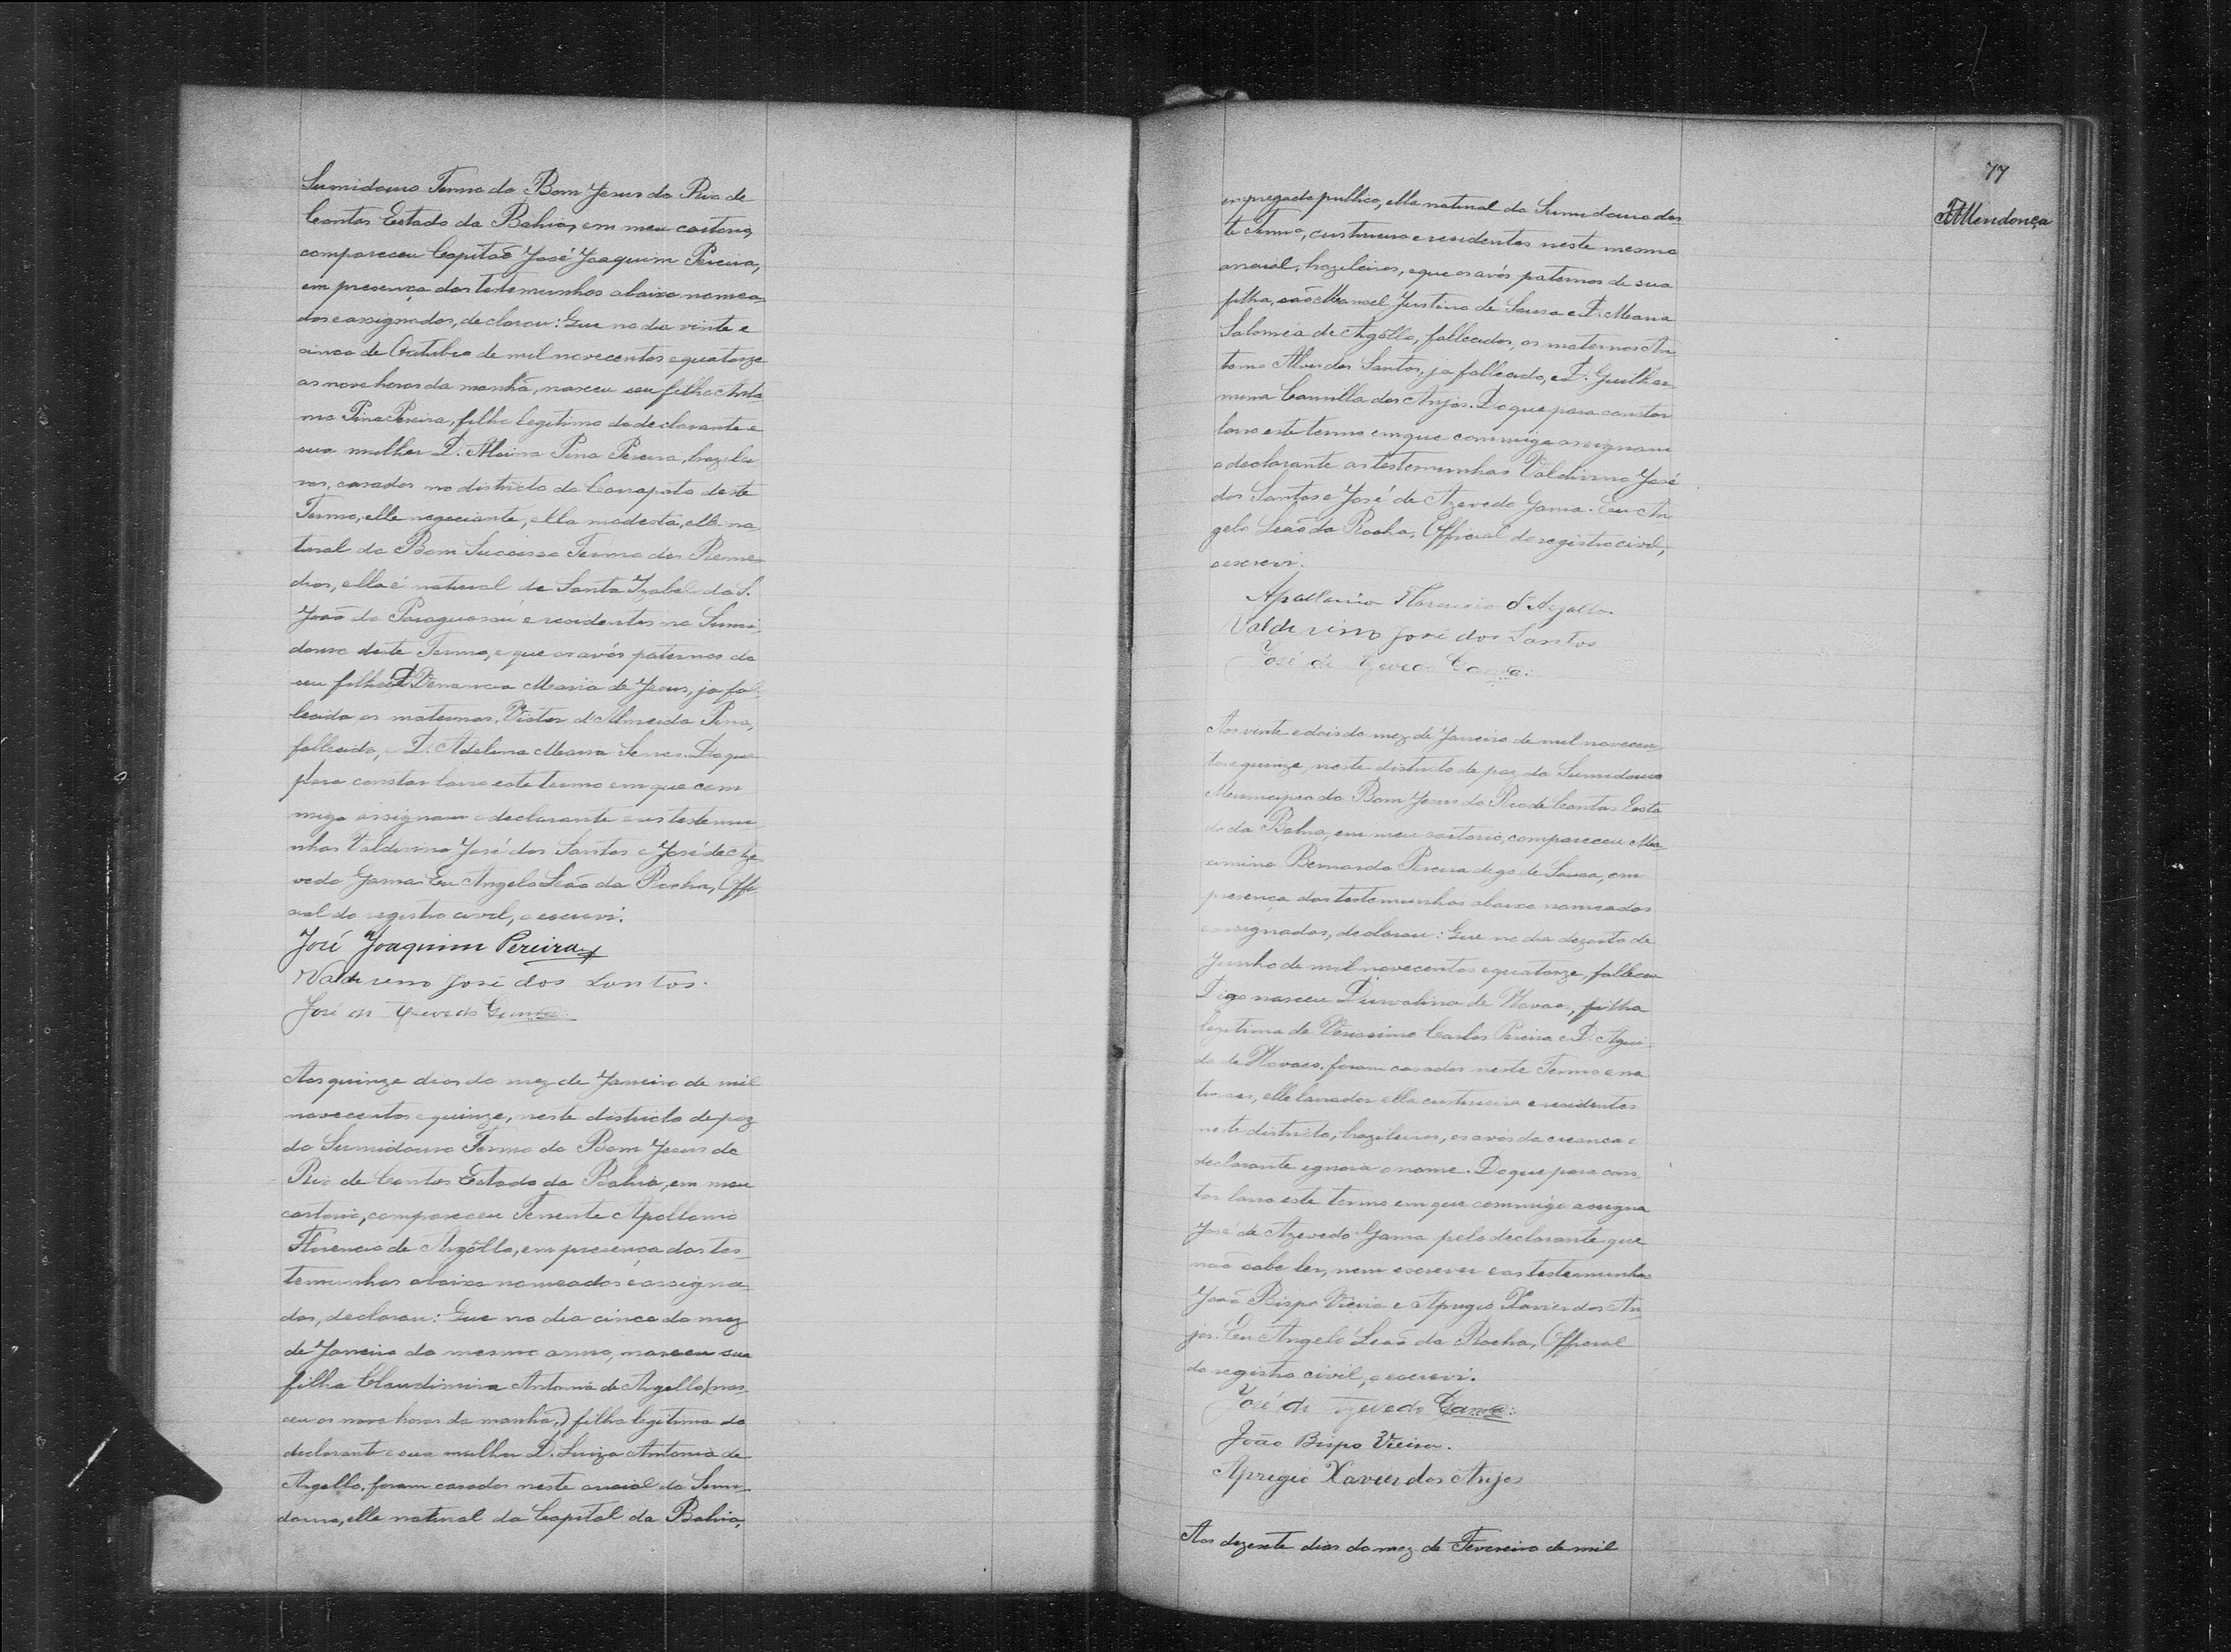 Sumidouro Termo do Bom Jesus do Rio de
Contas Estado da Bahia, em meu cartorio,
compareceu Capitaõ José Joaquim Pereira,
em presença das testemunhas abaixo nomea
das e assignadas, declarou: Que no dia vinte e
cinco de Outubro de mil novecentos e quatorze
as nove horas da manhã, nasceu seu filho
no Pina Pereira, filho legitimo do declarante e
sua mulher D. Pina Pereira, brazilei
ros, casados no districto do Carrapato deste
Termo, elle negociante, ella modesta, elle na
tural do Bom Successo Termo dos Reme
dios, ella é natural de Santa Izabel do S.
João do Paraguassú e residentes no Sumi
douro deste Termo, e que os avós paternos do
seu filho D. Venancia Maria de Jesus, ja fal
lecida os maternos, Victor d'Almeida Pina,
fallecido, D. Adelina Maria Do que
para constar lavro este termo em que com
migo assignam o declarante e as testemu
nhas Valdivino José dos Santos e José de Aze
vedo Gama. Eu Angelo Leão da Rocha, Offi
cial do registro civil, o escrevi.
José Joaquim Pereira
Valdivino José dos Santos.
José de Azevedo Gama.
Aos quinze dias do mez de Janeiro de mil
novecentos e quinze, neste districto de paz
do Sumidouro Termo do Bom Jesus do
Rio de Contas Estado da Bahia, em meu
cartorio, compareceu Tenente Apollonio
Florencio de Argôllo, em presença das tes
temunhas abaixo nomeadas e assigna
das, declarou: Que no dia cinco do mez
de Janeiro do mesmo anno, nasceu sua
filha Claudimira Antonia de Argollo (nas
ceu as nove horas da manhã,) filha legitima do
declarante e sua mulher D. Luiza Antonia de
Argollo, foram casados neste arraial do Sumi
douro, elle natural da Capital da Bahia,
77
Mendonça
empregado publico, ella natural do Sumidouro des
te Termo, custureira e residentes neste mesmo
arraial, brazileiros, e que os avós paternos de sua
filha, são Manoel Justino de Sousa e D. Maria
Saloméa de Argôllo, fallecidos, os maternos An
tonio Alves dos Santos, ja fallecido, e D. Guilher
mina Camilla dos Anjos. Do que para constar
lavro este termo em que commigo assignam
o declarante as testemunhas Valdivino José
dos Santos e José de Azevedo Gama. Eu An
gelo Leaõ da Rocha, Official do registro civil,
o escrevi.
Apollonio Florencio d'Argollo
Valdivino José dos Santos
José de Azevedo Gama.
Aos vinte e dois do mez de Janeiro de mil novecen
tos e quinze, neste districto de paz do Sumidouro
Municipio do Bom Jesus do Rio de Contas Esta
do da Bahia, em meu cartorio, compareceu Ma
ximino Bernardo Pereira digo de Sousa, em
presença das testemunhas abaixo nomeadas
e assignadas, declarou: Que no dia dezoito de
Junho de mil novecentos e quatorze, falleceu
Digo nasceu Durvalina de Novaes, filha
legitima de Verissimo Carlos Pereira e D.
de Novaes, foram casados neste Termo e na
turaes, elle lavrador ella custureira e residentes
neste districto, brazileiros, os avós da creança o
declarante ignora o nome. Do que para cons
tar lavro este termo em que commigo assigna
José de Azevedo Gama pelo declarante que
naõ sabe ler, nem escrever e as testemunhas
João Bispo Vieira e Aprigio Xavier dos An
jos. Eu Angelo Leaõ da Rocha, Official
do registro civil, o escrevi.
José de Azevedo Gama.
João Bispo Vieira.
Aprigio Xavier dos Anjos
Aos dezesete dias do mez de Fevereiro de mil